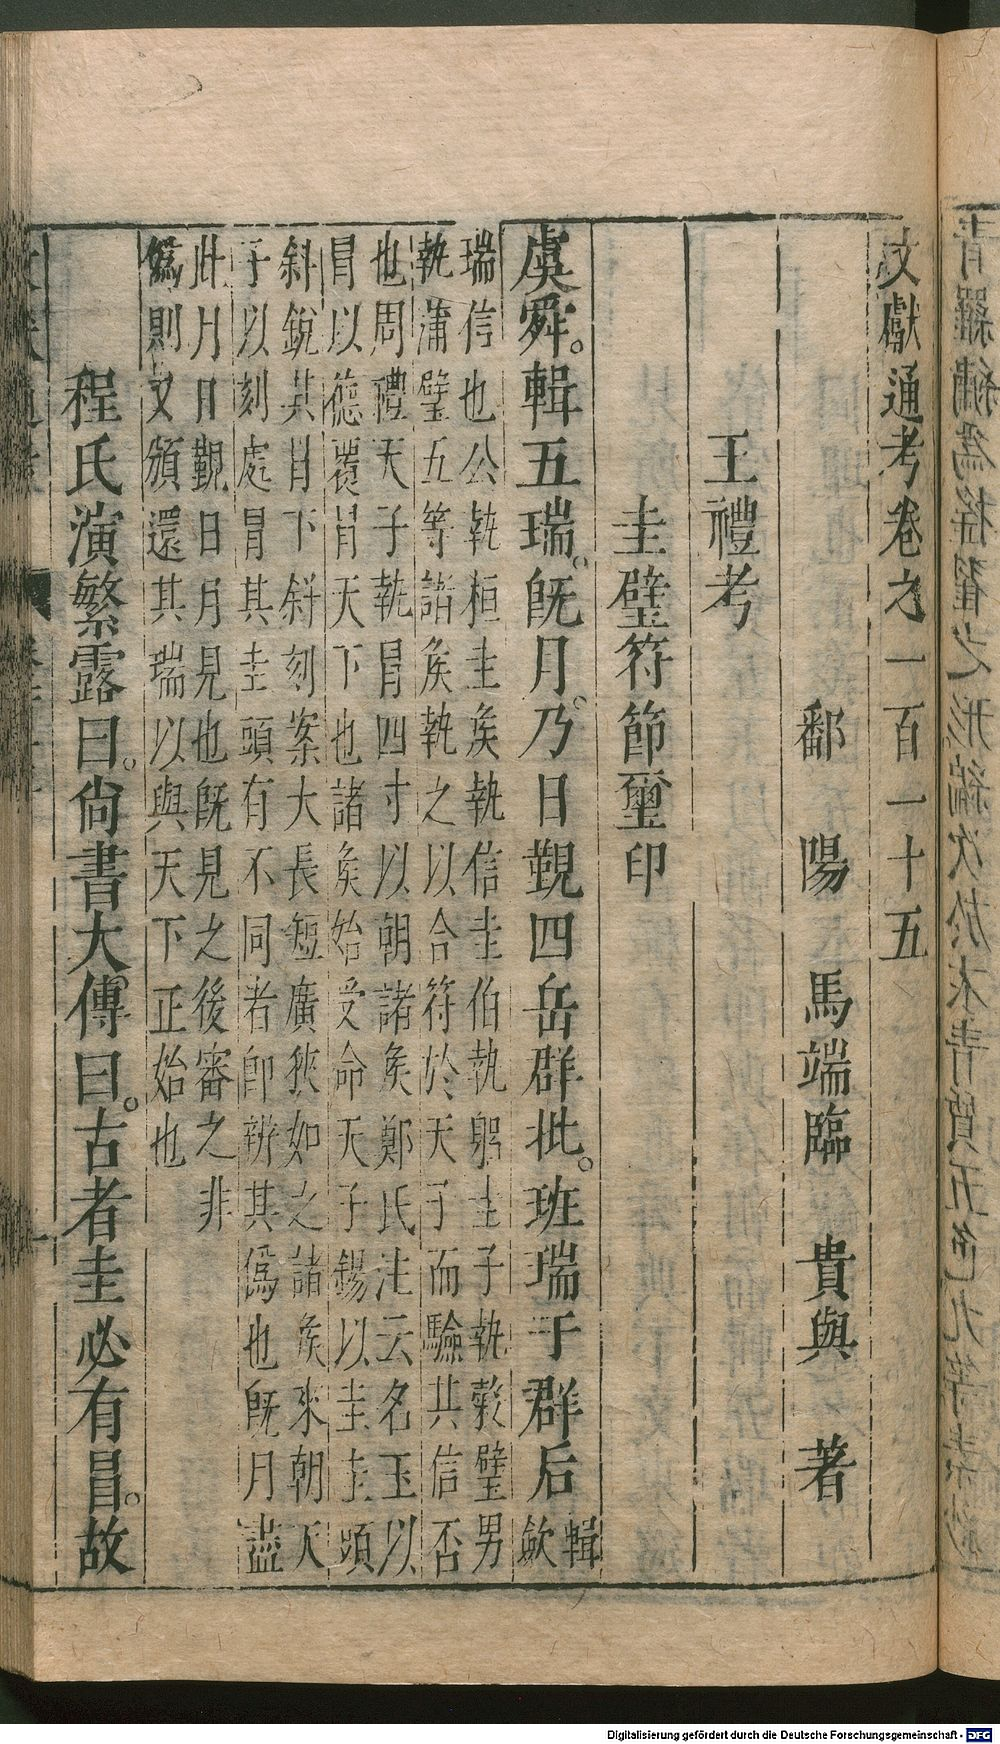 文獻通考卷之一百一十五
鄱陽馬端臨貴與著
王禮考
圭璧符節璽印
虞舜。輯五瑞。旣月。乃日覲四岳群批。班瑞于群后輯歛
瑞信也公執桓圭矦執信圭伯執躬圭子執穀璧男
執蒲璧五等諸矦執之以合符於天子而驗其信否
也周禮天子執冒四寸以朝諸矦鄭氏注云名玉以
冒以德覆冃天下也諸矦始受命天子錫以圭圭頭
斜銳其冃下斜刻案大長短廣狹如之諸矦來朝天
子以刻處冒其圭頭有不同者卽辨其僞也旣月盡
此月日覲日月見也旣見之後審之非
僞則又頒還其瑞以與天下正始也
程氏演繁露曰。尙書大傳曰。古者圭必有冒。故
Digitalisierung gefördert durch die Deutsche Forschungsgemeinschaft - DFG